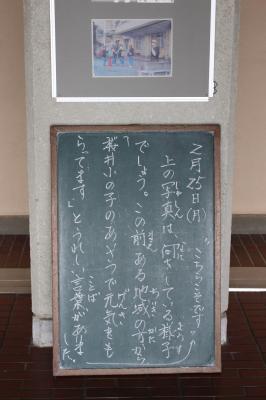 2月25日(月)
"こちらこそです"
上の写真は何をしている様子
でしょう。この前ある地域の方から
「桜井小の子のあいさつで元気をも
らってます」とうれしい言葉がありま
した。